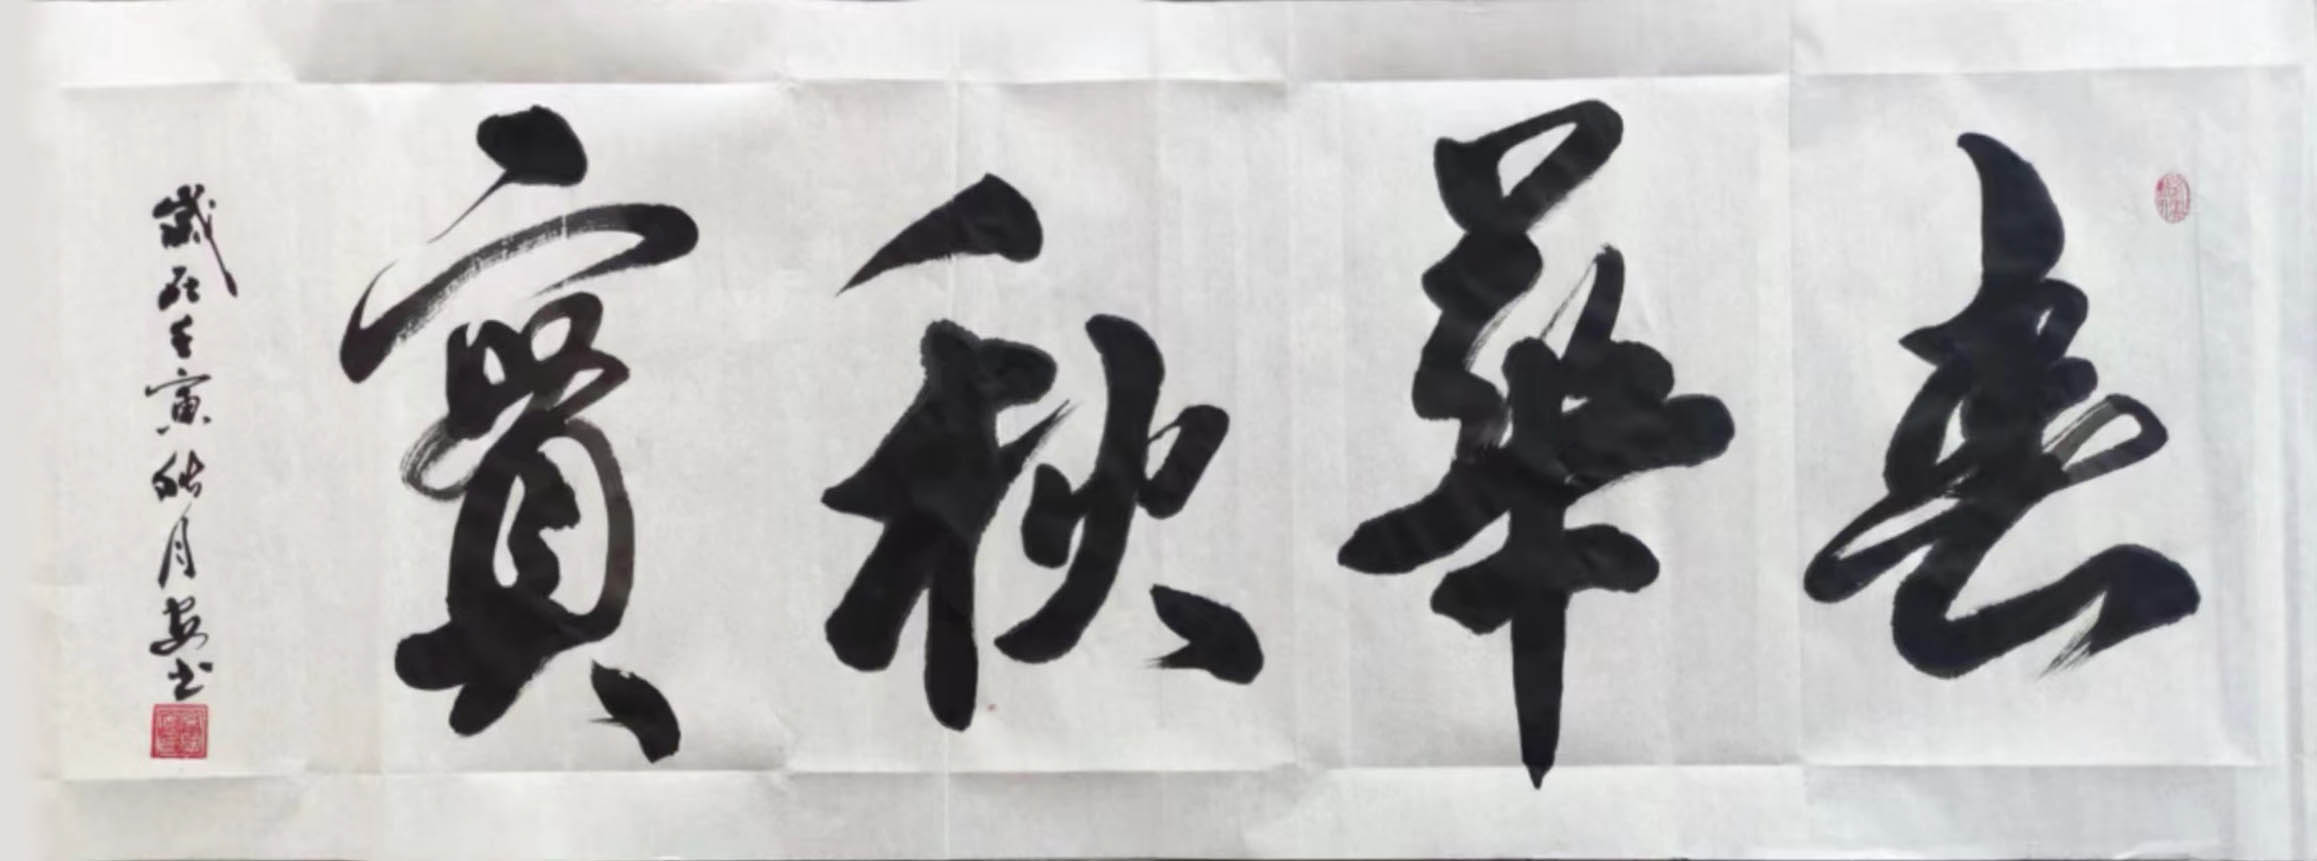 春華秋實
歲在壬寅皓月安書